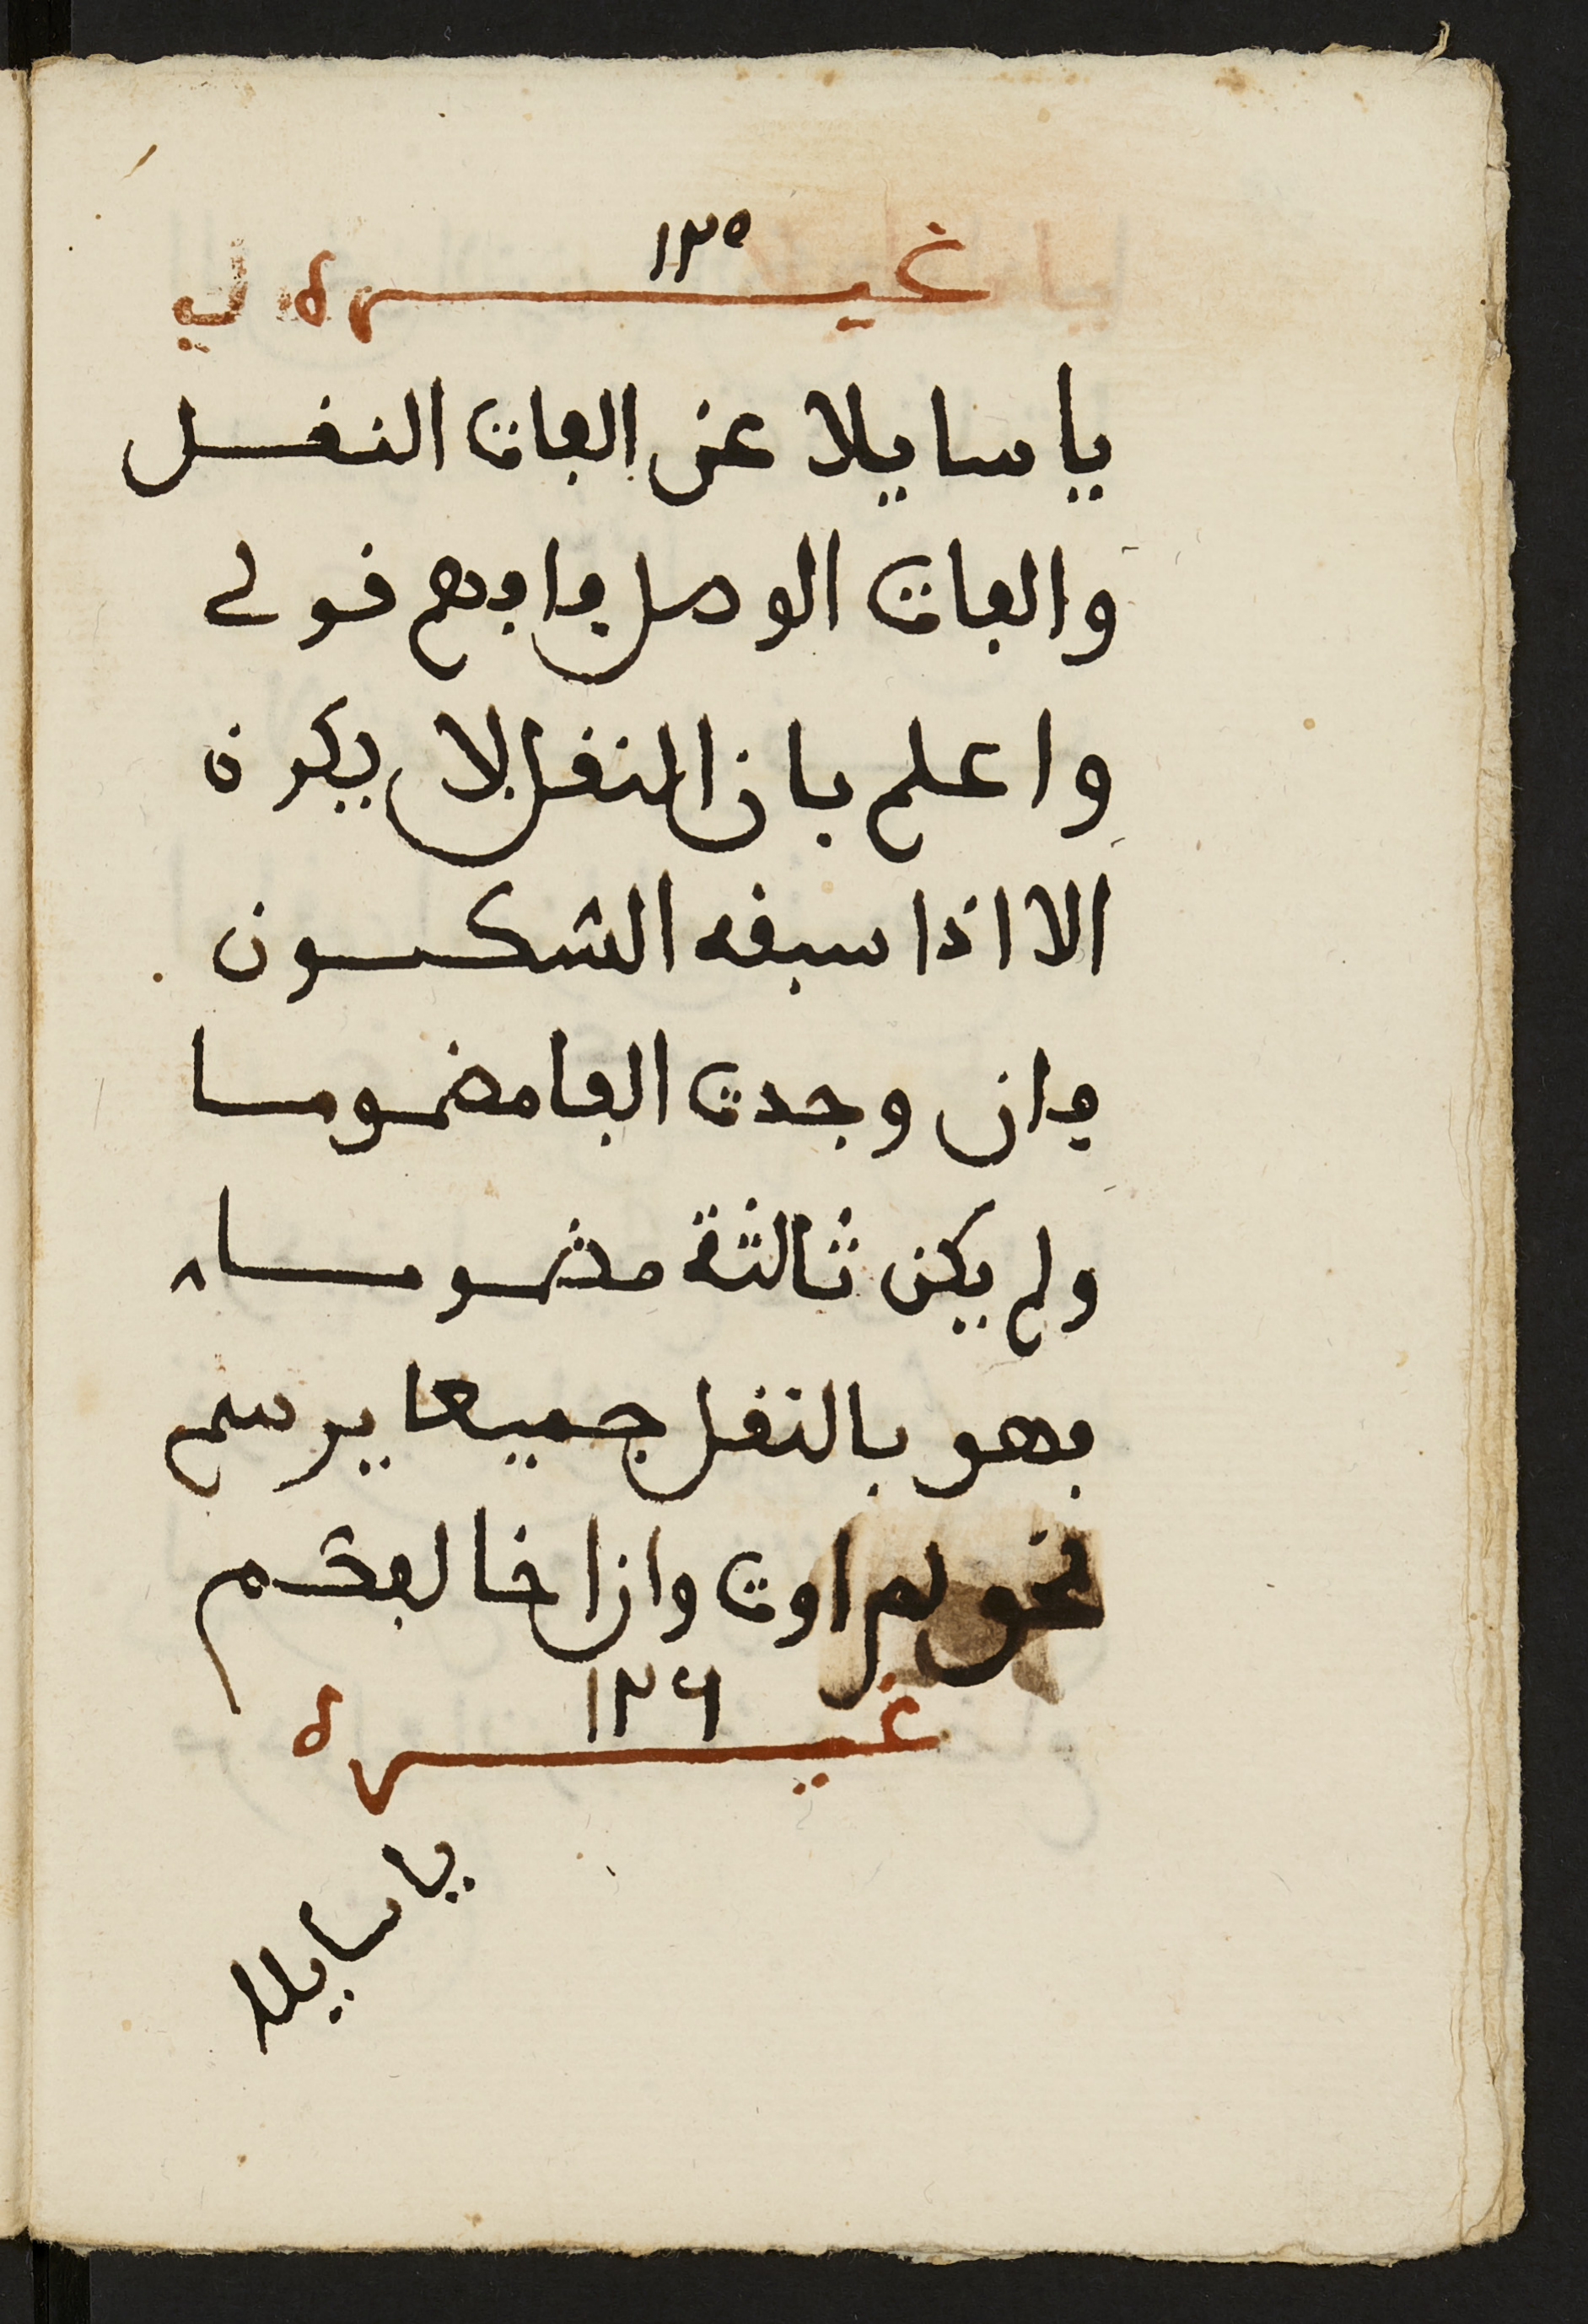 غيره لي ١٢٥
يا سايلا عن الفات النقل
والفات الوصل فافهم قولي
واعلم بان النقل لا يكون
الا اذا سبقه الشكون
فان وجدت الفا مضموما
ولم يكن ثالثة مضموما
فهو بالنقل جميعا يرسم
نحو لم اوت وان اخالفكم
غيره ١٢٦
يا سايلا